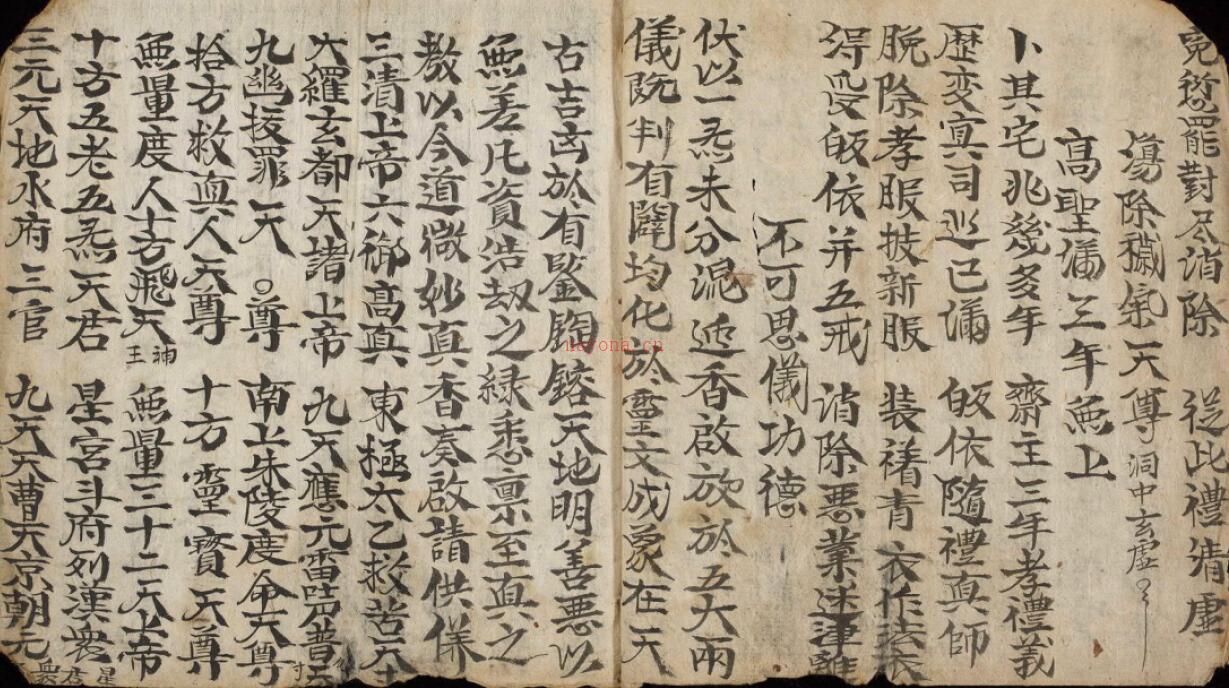 冤愆罷對尽消除　從此禮清虛
蕩除穢氣天尊　洞中玄虛
高聖滿三年無上
卜其宅兆幾多年　齋主三年孝禮義
歷变冥司巡已滿　皈依隨禮真師
脫除孝服披新服　装褚青衣作法衣
得受皈依并五戒　消除惡業迷津
不可思儀功德
伏以一炁未分混逆香啟放於五大兩
儀既判有闢均化於霊文成象在天
古吉凶於有鍳鈎鎔天地明善惡以
無差凡資浩刼之緑悉禀至真之
教以今道微妙真香奏啟請供儀
三清上帝六御高真　東極太乙救苦天
大羅玄都天諸上帝　九天應元雷声普
九幽拔罪天○尊　南上朱陵度命天尊
拾方救真人天尊　十方靈寳天尊
無量度人十方飛天神王　無量三十二天上帝
十方五老五炁天君　星宮斗府列漢衆星君衆
三元天地水府三官　九天天曹天京朝元
nayona.cn